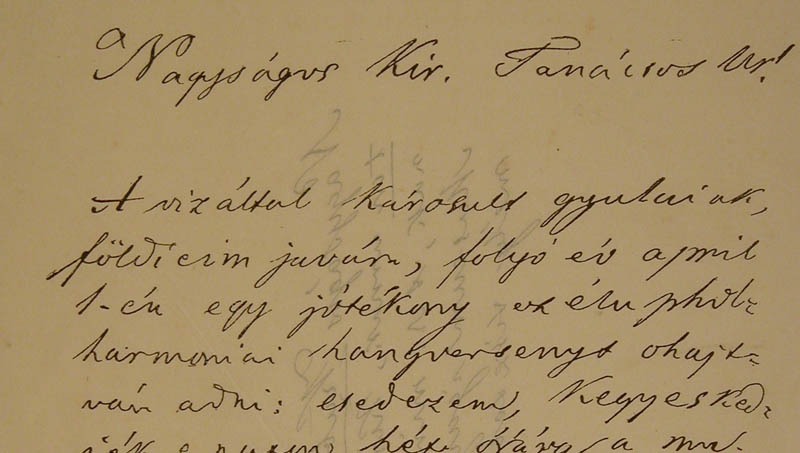 Nagyságos Kir. Tanácsos Ur!
A viz által károsult gyulaiak,
földieim javára, folyó év april
1-én egy jótékony czélu phil-
harmoniai hangversenyt ohajt-
ván adni: esedezem, kegyesked-
hét órára a